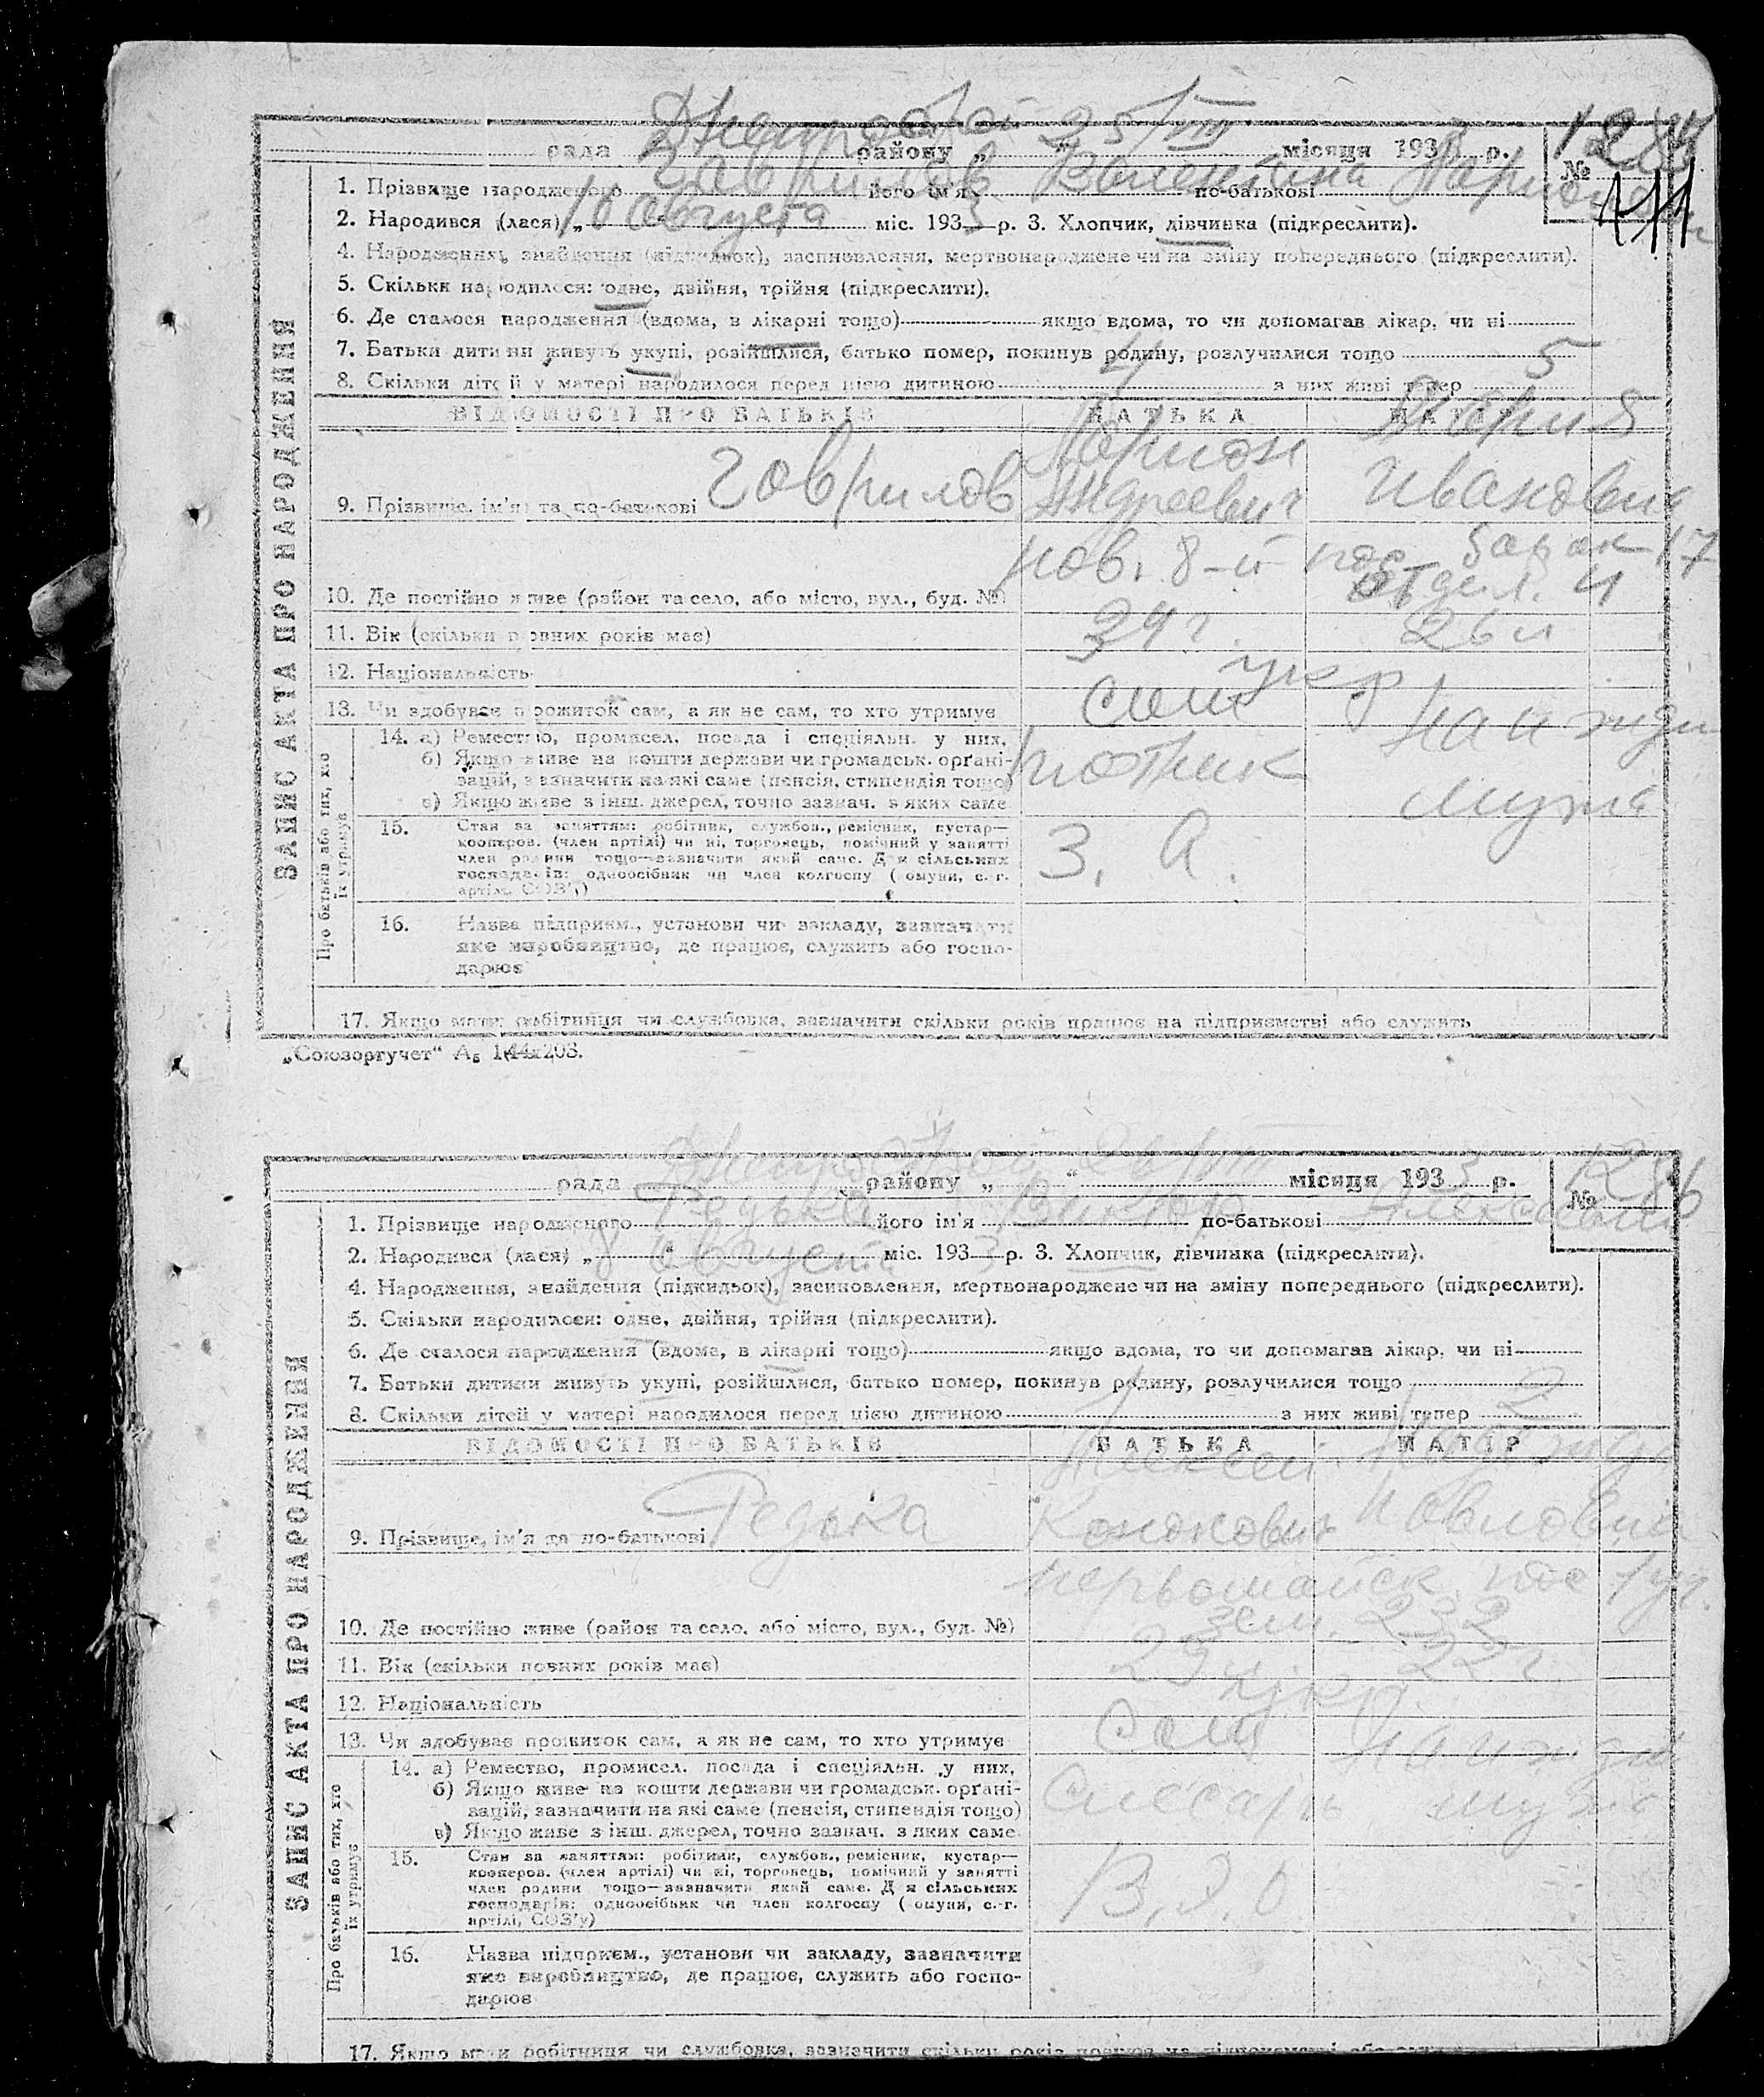 Днепрострой 25/VIII
рада району „ “ місяця 1933 р.
№ 1284
1. Прізвище народженого Гаврилов його ім'я Валентина по-батькові
2. Народився (лася) „16 августа міс. 1933 р. 3. Хлопчик, дівчинка (підкреслити).
4. Народження, знайдення (підкидьок), засиновлення, мертвонароджене чи на зміну попереднього (підкреслити).
5. Скільки народилося: одне, двійня, трійня (підкреслити).
6. Де сталося народження (вдома, в лікарні тощо) якщо вдома, то чи допомагав лікар, чи ні
7. Батьки дитини живуть укупі, розійшлися, батько помер, покинув родину, розлучилися тощо
8. Скільки дітей у матері народилося перед цією дитиною 4 з них живі тепер 5
ВІДОМОСТІ ПРО БАТЬКІВ БАТЬКА МАТІР
9. Прізвище, ім'я та по-батькові Гаврилов Ларион Андреевич Мария Ивановна
10. Де постійно живе (район та село, або місто, вул., буд. №) пов. 8-й пос. барак 17 отдел. 4
11. Вік (скільки повних років має) 34 г. 26 л
12. Національність укр
13. Чи здобуває прожиток сам, а як не сам, то хто утримує сам на ижди
ЗАПИС АКТА ПРО НАРОДЖЕННЯ
Про батьків або тих, хто їх утримує
14. а) Ремество, промисел, посада і спеціяльн. у них,
б) Якщо живе на кошти держави чи громадськ. орґані-
зацій, зазначити на які саме (пенсія, стипендія тощо)
в) Якщо живе з інш. джерел, точно зазнач. з яких саме
плотник мужа
15. Стан за заняттям: робітник, службов., ремісник, кустар—
кооперов. (член артілі) чи ні, торговець, помічний у занятті
член родини тощо—зазначити який саме. Для сільських
господарів: одноосібник чи член колгоспу (комуни, с.-г.
артілі, СОЗ'у)
З. А.
16. Назва підприєм., установи чи закладу, зазначити
яке виробництво, де працює, служить або госпо-
дарює
17. Якщо мати робітниця чи службовка, зазначити скільки років працює на підприємстві або служить
„Союзоргучет“ А₅ 144х208.
Днепрострой
рада району „ “ місяця 1933 р.
№ 1286
1. Прізвище народженого Редька його ім'я Виктор по-батькові
2. Народився (лася) „8 августа міс. 1933 р. 3. Хлопчик, дівчинка (підкреслити).
4. Народження, знайдення (підкидьок), засиновлення, мертвонароджене чи на зміну попереднього (підкреслити).
5. Скільки народилося: одне, двійня, трійня (підкреслити).
6. Де сталося народження (вдома, в лікарні тощо) якщо вдома, то чи допомагав лікар, чи ні
7. Батьки дитини живуть укупі, розійшлися, батько помер, покинув родину, розлучилися тощо
8. Скільки дітей у матері народилося перед цією дитиною 1 з них живі тепер 2
ВІДОМОСТІ ПРО БАТЬКІВ БАТЬКА МАТІР
9. Прізвище, ім'я та по-батькові Редька Алексей Кононович Надежда Павловна
10. Де постійно живе (район та село, або місто, вул., буд. №) первомайск. пос 1 уч. зем. 232
11. Вік (скільки повних років має) 22 г.
12. Національність укр
13. Чи здобуває прожиток сам, а як не сам, то хто утримує сам на ижди
ЗАПИС АКТА ПРО НАРОДЖЕННЯ
Про батьків або тих, хто їх утримує
14. а) Ремество, промисел, посада і спеціяльн. у них,
б) Якщо живе на кошти держави чи громадськ. орґані-
зацій, зазначити на які саме (пенсія, стипендія тощо)
в) Якщо живе з інш. джерел, точно зазнач. з яких саме
слесарь мужа
15. Стан за заняттям: робітник, службов., ремісник, кустар—
кооперов. (член артілі) чи ні, торговець, помічний у занятті
член родини тощо—зазначити який саме. Для сільських
господарів: одноосібник чи член колгоспу (комуни, с.-г.
артілі, СОЗ'у)
16. Назва підприєм., установи чи закладу, зазначити
яке виробництво, де працює, служить або госпо-
дарює
17. Якщо мати робітниця чи службовка, зазначити скільки років працює на підприємстві або служить